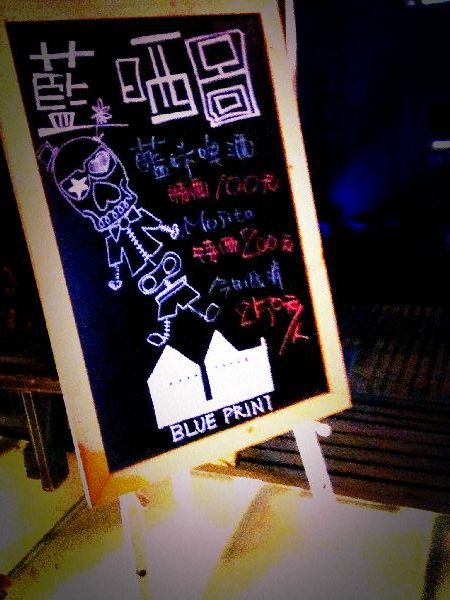 藍晒圖
藍冰啤酒
特價100元
Mojito
特價200元
今日
250元/人
BLUE PRINT